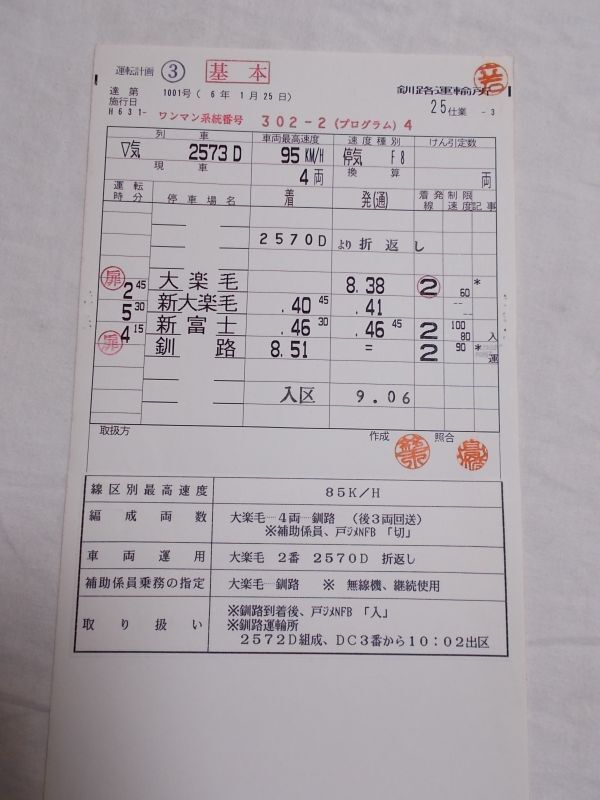 運転計画 ③ 基本
釧路運輸所
達 第 1001号 ( 6年 1月25日)
施行日
25仕業 -3
H631- ワンマン系統番号 302-2 (プログラム) 4
列 車 車両最高速度 速度種別 けん引定数
▽気 2573D 95KM/H 停気 F8
現 車 4両 換 算 両
運転時分 停車場名 着 発(通) 着発線 制限速度 記事
2570D より 折返し
扉 大楽毛 8.38 2 60 *
2 45
新大楽毛 .40 45 .41 -- --
5 30
新富士 .46 30 .46 45 2 100 80 入
4 15
扉 釧路 8.51 = 2 90 * 運
入区 9.06
取扱方 作成 照合
線区別最高速度 85K/H
編成両数 大楽毛─4両─釧路 (後3両回送)
※補助係員、戸ジメNFB 「切」
車両運用 大楽毛 2番 2570D 折返し
補助係員乗務の指定 大楽毛─釧路 ※ 無線機、継続使用
取り扱い ※釧路到着後、戸ジメNFB 「入」
※釧路運輸所
2572D組成、DC3番から10:02出区